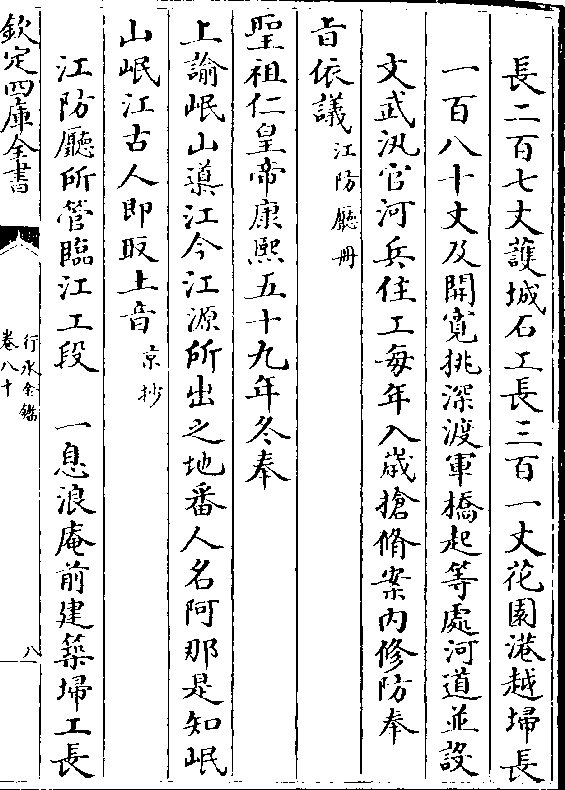 長二百七丈護城石工長三百一丈花園港越埽長
一百八十丈及開寛挑深渡軍橋起等處河道並設
文武汛官河兵住工每年入歲搶脩案内修防奉
㫖依議江防廳冊
聖祖仁皇帝康熙五十九年冬奉
上諭岷山導江今江源所出之地番人名阿那是知岷
山岷江古人即取上音京抄
江防廳所管臨江工段　一息浪庵前建築埽工長
欽定四庫全書
行水金鑑
卷八十
八